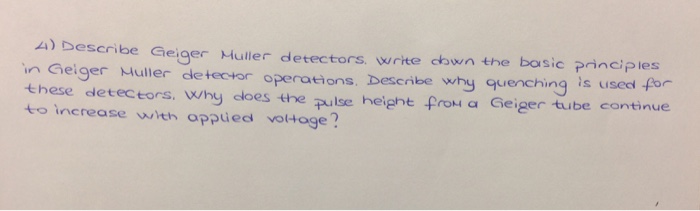 4) Describe Geiger Muller detectors. Write down the basic principles
in Geiger Muller detector operations. Describe why quenching is used for
these detectors. Why does the pulse height from a Geiger tube continue
to increase with applied voltage?